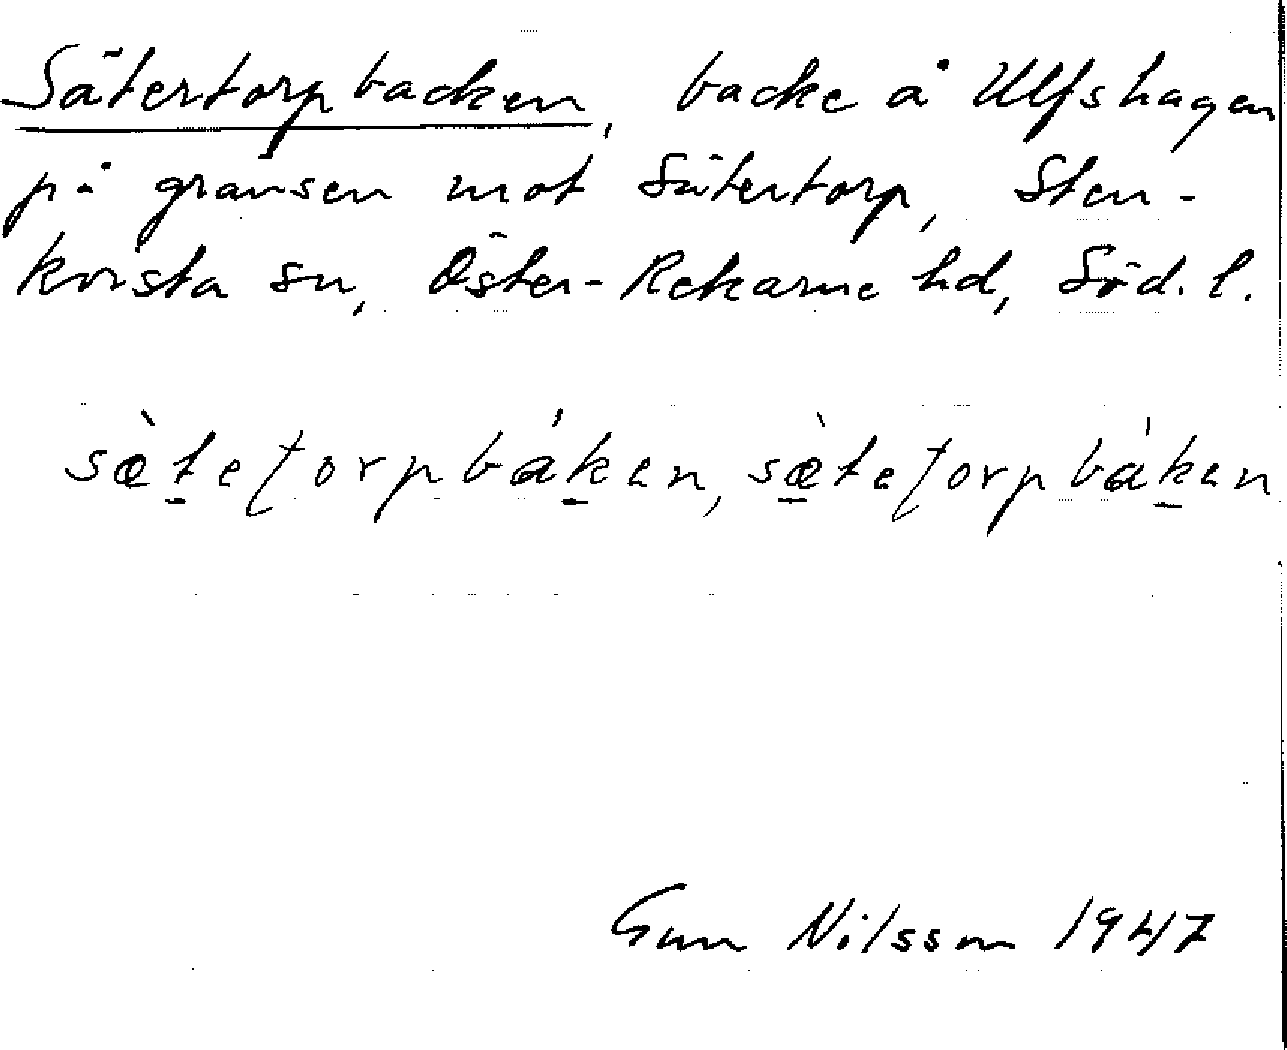 Sätertorpbacken, backe å Ulfshagen
på gränsen mot Sätertorp, Sten-
kvista sn, Öster-Rekarne hd, Söd. l.
sæ̀teʈorpbáken, sæ̀teʈorpbáken
Gun Nilsson 1947